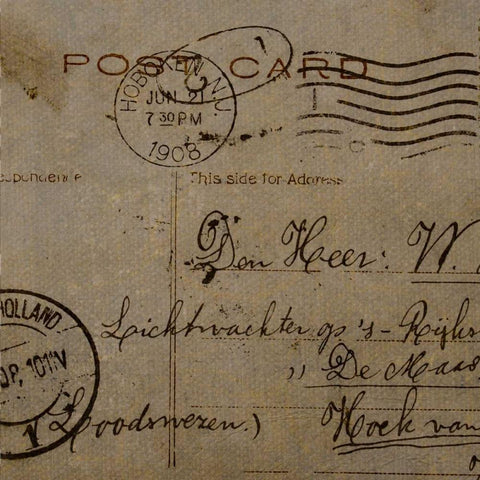 POST CARD
HOBOKEN, N.J.
JUN 21
7 30 PM
1908
This side for Address
Den Heer: W.
HOLLAND
Lichtwachter op 's-Rijks
" De Maas
(Loodswezen.)
Hoek van